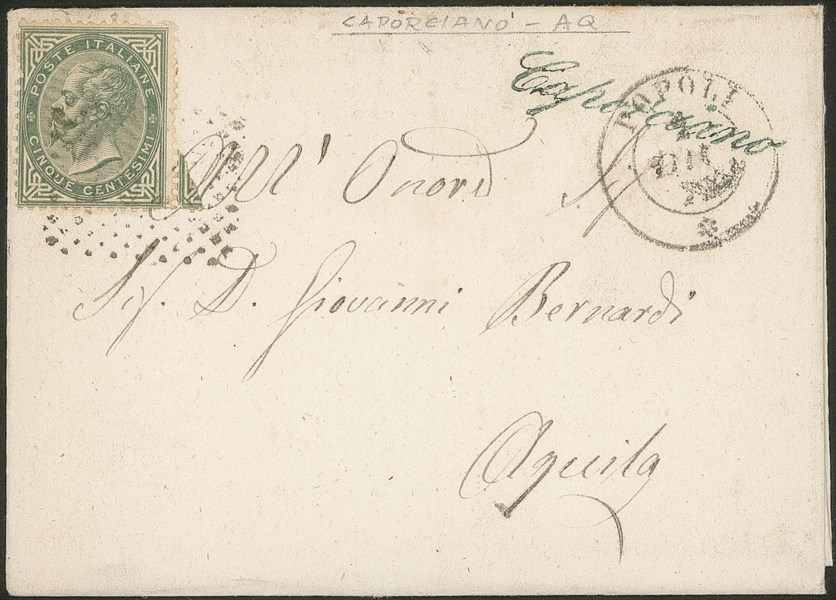 CAPORCIANO - AQ
POSTE ITALIANE
CINQUE CENTESIMI
Caporciano
POPOLI
All' Onord Sig
Sig. D. Giovanni Bernardi
Aquila